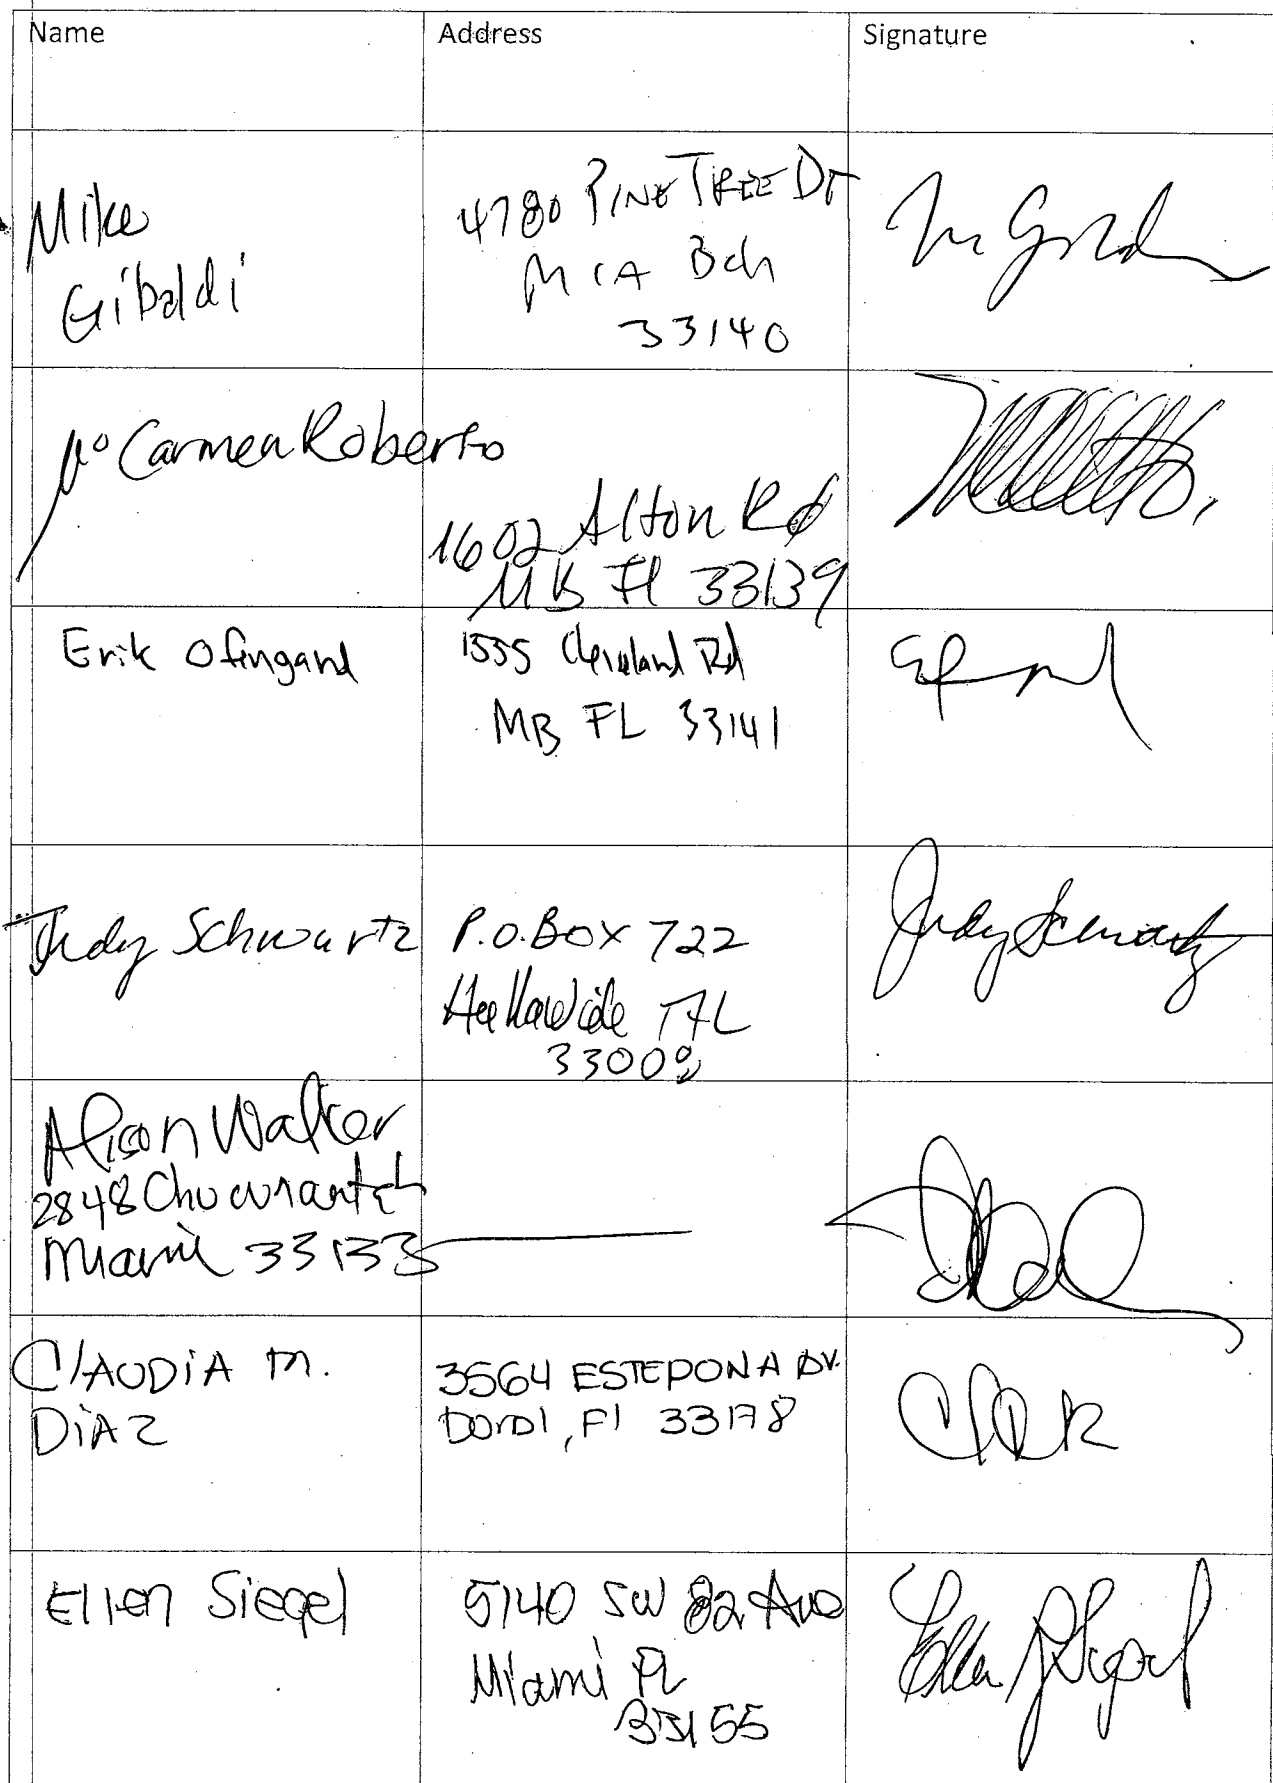 Name Address Signature
Mike
Gibaldi
4780 PINE TREE Dr
MIA Bch
33140
Mª Carmen Roberto
1602 Alton Rd
MB Fl 33139
Erik Ofengand
1555 Cleveland Rd
MB FL 33141
Judy Schwartz
P.O.Box 722
FL
33008
Judy Schwartz
Alison Walker
2848
Miami 33133
CLAUDIA M.
DIAZ
3564 ESTEPONA AV.
Doral, Fl 33178
Ellen Siegel
5140 SW 82 Ave
Miami FL
33155
Ellen J Siegel